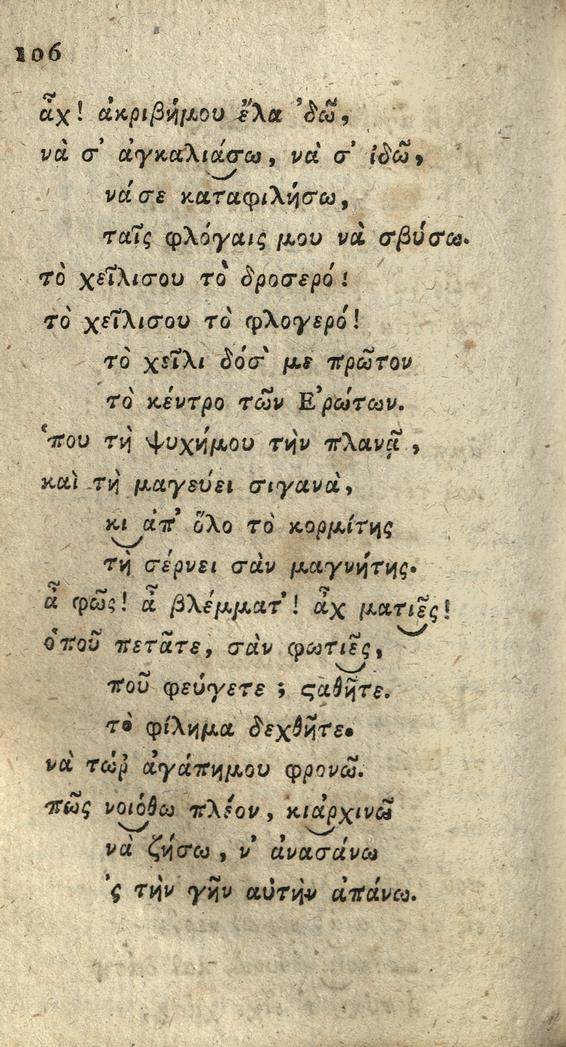 106
ἆχ! ἀκριβήμου ἔλα 'δῶ,
νὰ σ' ἀγκαλιάσω, νὰ σ' ἰδῶ,
νάσε καταφιλήσω,
ταῖς φλόγαις μου νὰ σβύσω.
τὸ χεῖλισου τὸ δροσερό!
τὸ χεῖλισου τὸ φλογερό!
τὸ χεῖλι δόσ' με πρῶτον
τὸ κέντρο τῶν Ε'ρώτων.
'που τὴ ψυχήμου τὴν πλανᾷ,
καὶ τὴ μαγεύει σιγανὰ,
κι ἀπ' ὅλο τὸ κορμίτης
τὴ σέρνει σὰν μαγνήτης.
ἆ φῶς! ἆ βλέμματ'! ἆχ ματιε͂ς!
ὁποῦ πετᾶτε, σὰν φωτιε͂ς,
ποῦ φεύγετε; ϛαθῆτε.
τὸ φίλημα δεχθῆτε.
νὰ τώρ' ἀγάπημου φρονῶ.
πῶς νοιόθω πλέον, κιἀρχινῶ
νὰ ζήσω, ν' ἀνασάνω
'ς τὴν γῆν αὐτὴν ἀπάνω.